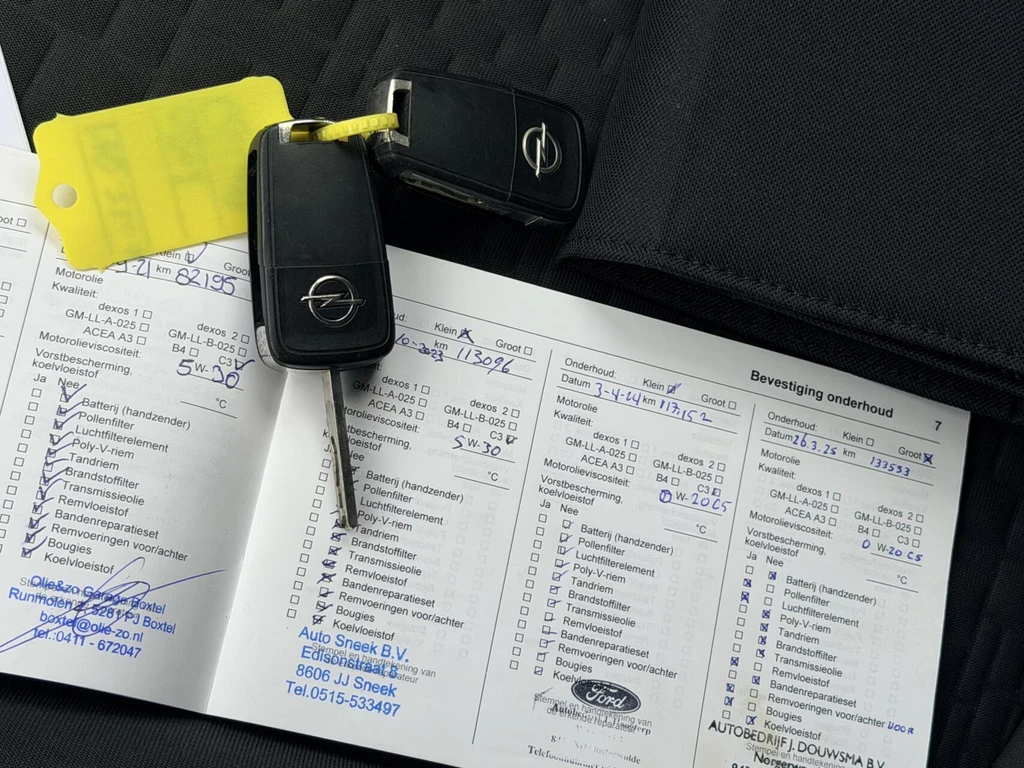 Bevestiging onderhoud 7
oot
Klein Groot
9-21 km 82195
Motorolie
Kwaliteit:
dexos 1 dexos 2
GM-LL-A-025 GM-LL-B-025
ACEA A3 B4 C3
Motorolieviscositeit: 5 W- 30
Vorstbescherming,
koelvloeistof °C
Ja Nee
Batterij (handzender)
Pollenfilter
Luchtfilterelement
Poly-V-riem
Tandriem
Brandstoffilter
Transmissieolie
Remvloeistof
Bandenreparatieset
Remvoeringen voor/achter
Bougies
Koelvloeistof
Olie&zo Garage Boxtel
Runmolen 2, 5281 PJ Boxtel
boxtel@olie-zo.nl
tel.:0411 - 672047
ud: Klein Groot
10-2023 km 113096
dexos 1 dexos 2
GM-LL-A-025 GM-LL-B-025
ACEA A3 B4 C3
torolieviscositeit: 5 W- 30
tbescherming,
stof °C
Batterij (handzender)
Pollenfilter
Luchtfilterelement
Poly-V-riem
Tandriem
Brandstoffilter
Transmissieolie
Remvloeistof
Bandenreparatieset
Remvoeringen voor/achter
Bougies
Koelvloeistof
Stempel en handtekening van
Auto Sneek B.V.
Edisonstraat
8606 JJ Sneek
Tel.0515-533497
Onderhoud: Klein Groot
Datum 3-4-24 km 117.152
Motorolie
Kwaliteit:
dexos 1 dexos 2
GM-LL-A-025 GM-LL-B-025
ACEA A3 B4 C3
Motorolieviscositeit: 0 W- 20 C5
Vorstbescherming,
koelvloeistof °C
Ja Nee
Batterij (handzender)
Pollenfilter
Luchtfilterelement
Poly-V-riem
Tandriem
Brandstoffilter
Transmissieolie
Remvloeistof
Bandenreparatieset
Remvoeringen voor/achter
Bougies
Koelv
Ford
Stempel en handtekening van
de erkende reparateur
Onderhoud: Klein Groot
Datum 26.3.25 km 133533
Motorolie
Kwaliteit:
dexos 1 dexos 2
GM-LL-A-025 GM-LL-B-025
ACEA A3 B4 C3
Motorolieviscositeit: 0 W- 20 C5
Vorstbescherming,
koelvloeistof °C
Ja Nee
Batterij (handzender)
Pollenfilter
Luchtfilterelement
Poly-V-riem
Tandriem
Brandstoffilter
Transmissieolie
Remvloeistof
Bandenreparatieset
Remvoeringen voor/achter VOOR
Bougies
Koelvloeistof
AUTOBEDRIJF J. DOUWSMA B.V.
Stempel en handtekening van